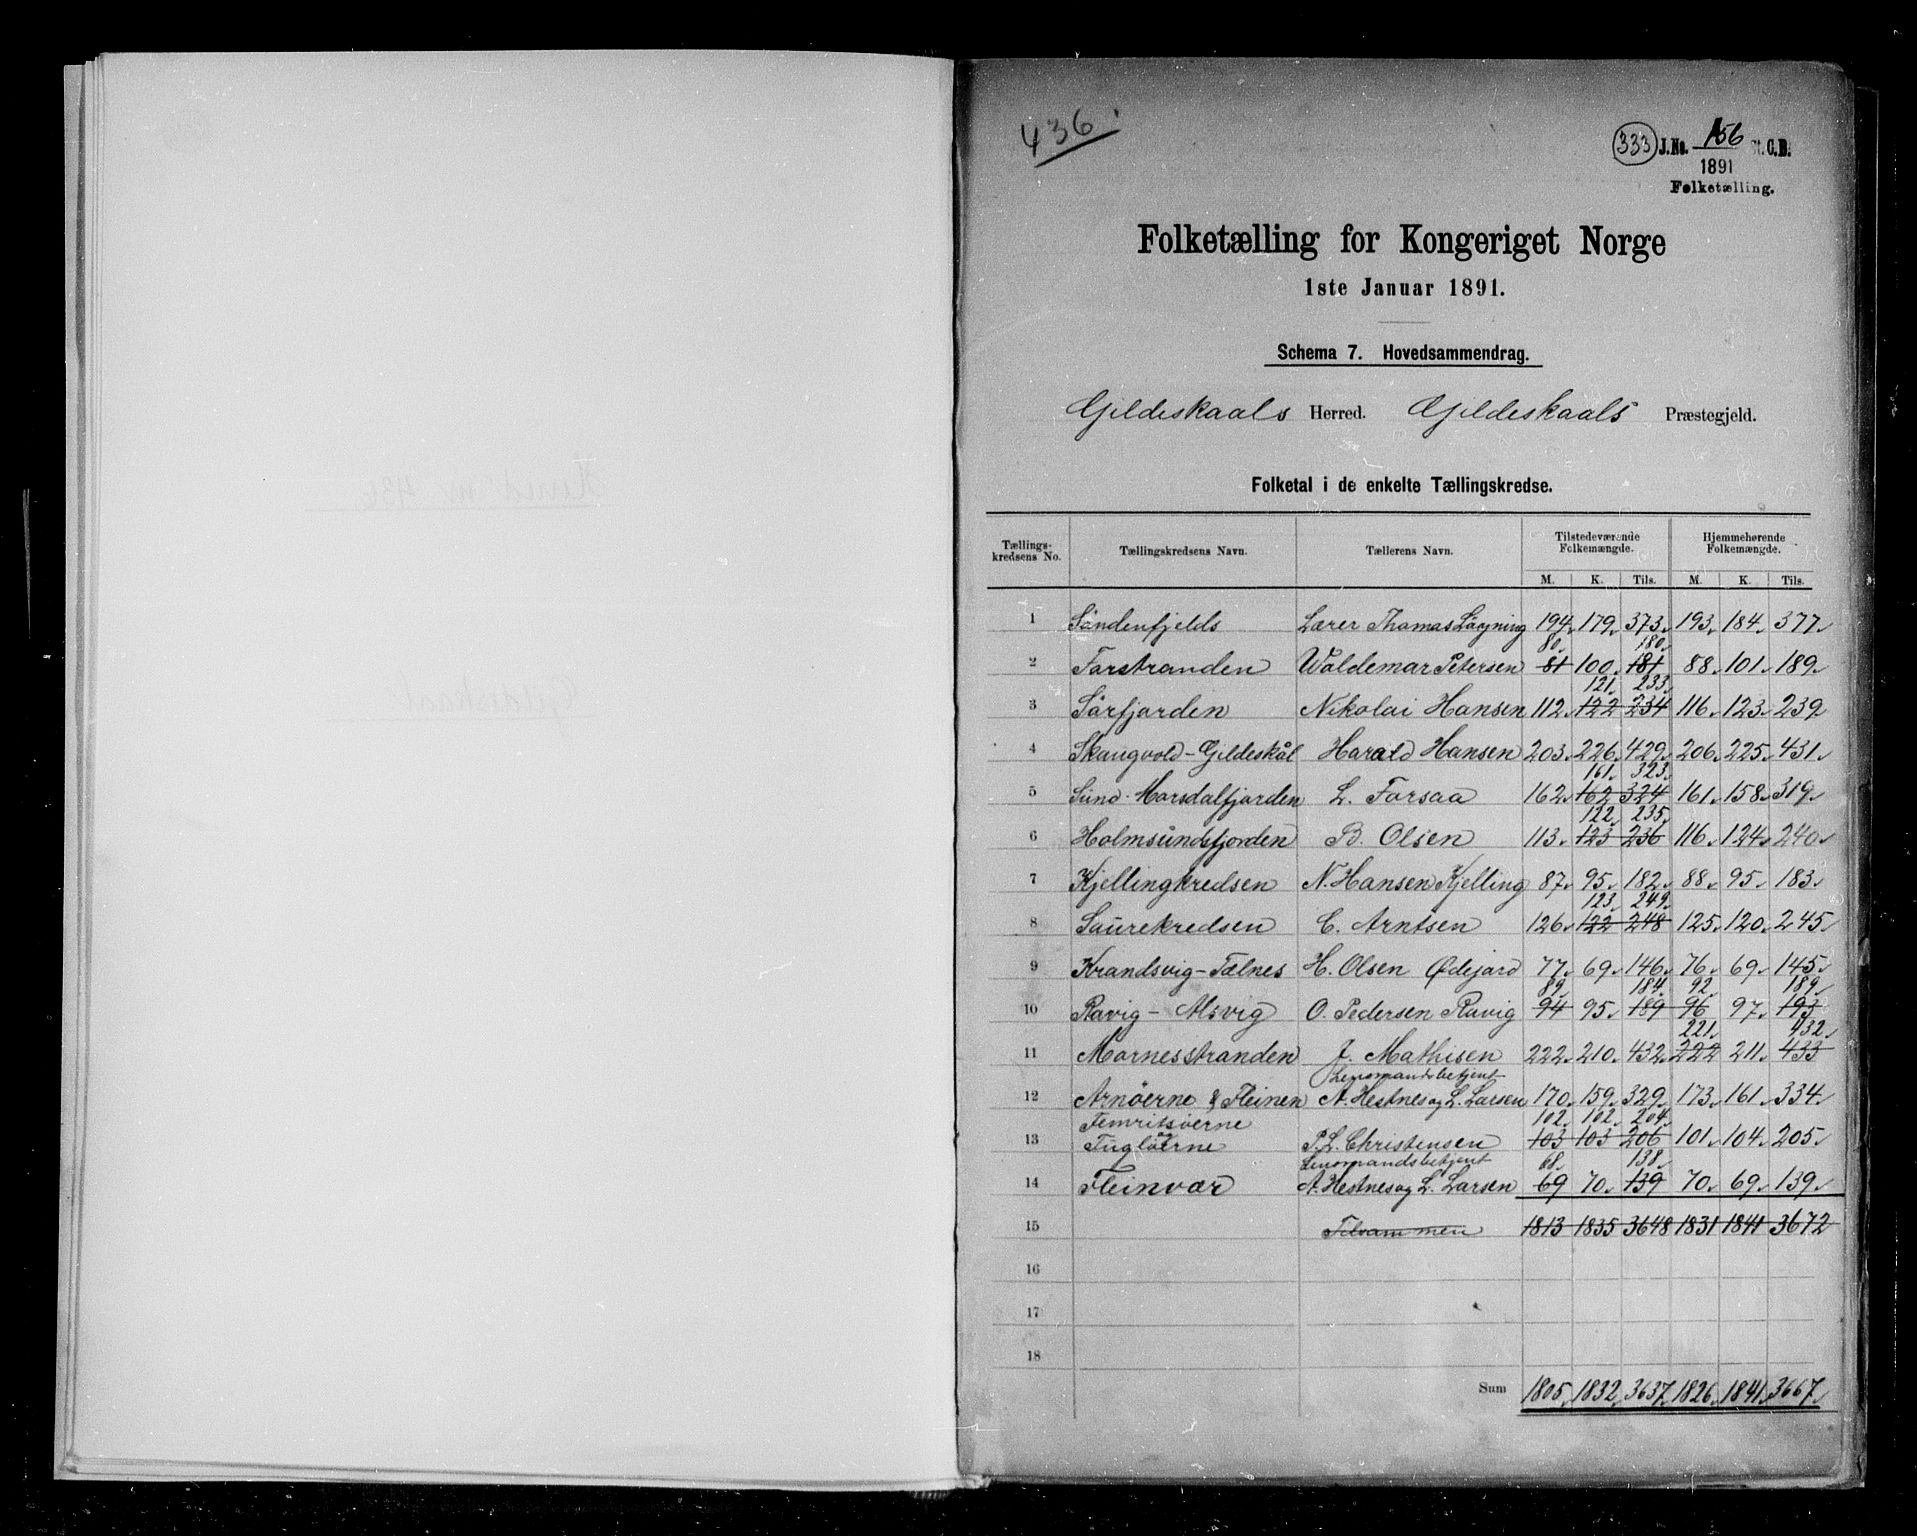 436.
333 J.No. 156 St. C.B.
1891
Folketælling.
Folketælling for Kongeriget Norge
1ste Januar 1891.
Schema 7. Hovedsammendrag.
Gildeskaals Herred. Gildeskaals Præstegjeld.
Folketal i de enkelte Tællingskredse.
Tællings-kredsens No. Tællingskredsens Navn. Tællerens Navn. Tilstedeværende Folkemængde. Hjemmehørende Folkemængde.
M. K. Tils. M. K. Tils.
1 Søndenfjelds Lærer Thomas Løgning 194 179 373 193 184 377
80 180
2 Forstranden Waldemar Petersen 81 100 181 88 101 189
121 233
3 Sørfjorden Nikolai Hansen 112 122 234 116 123 239
4 Skaugvold-Gildeskål Harald Hansen 203 226 429 206 225 431
161 323
5 Sund-Morsdalfjorden L. Forsaa 162 162 324 161 158 319
122 235
6 Holmsundsfjorden B. Olsen 113 123 236 116 124 240
7 Kjellingkredsen N. Hansen Kjelling 87 95 182 88 95 183
123 249
8 Saurekredsen C. Arntsen 126 122 248 125 120 245
9 Krandsvig-Tælnes H. Olsen Ødejard 77 69 146 76 69 145
89 184 92 189
10 Ravig - Alsvig O. Pedersen Ravig 94 95 189 96 97 193
221 432
11 Mornesstranden J. Mathisen 222 210 432 222 211 433
Lensmandsbetjent
12 Arnöerne & Fleinen A. Hestnes og L. Larsen 170 159 329 173 161 334
Femritsöerne 102 102 204
13 og Fuglöerne P.L. Christensen 103 103 206 101 104 205
Lensmandsbetjent 68 138
14 Fleinvær A. Hestnes og L. Larsen 69 70 139 70 69 139
15 Tilsammen 1813 1835 3648 1831 1841 3672
16
17
18
Sum 1805 1832 3637 1826 1841 3667